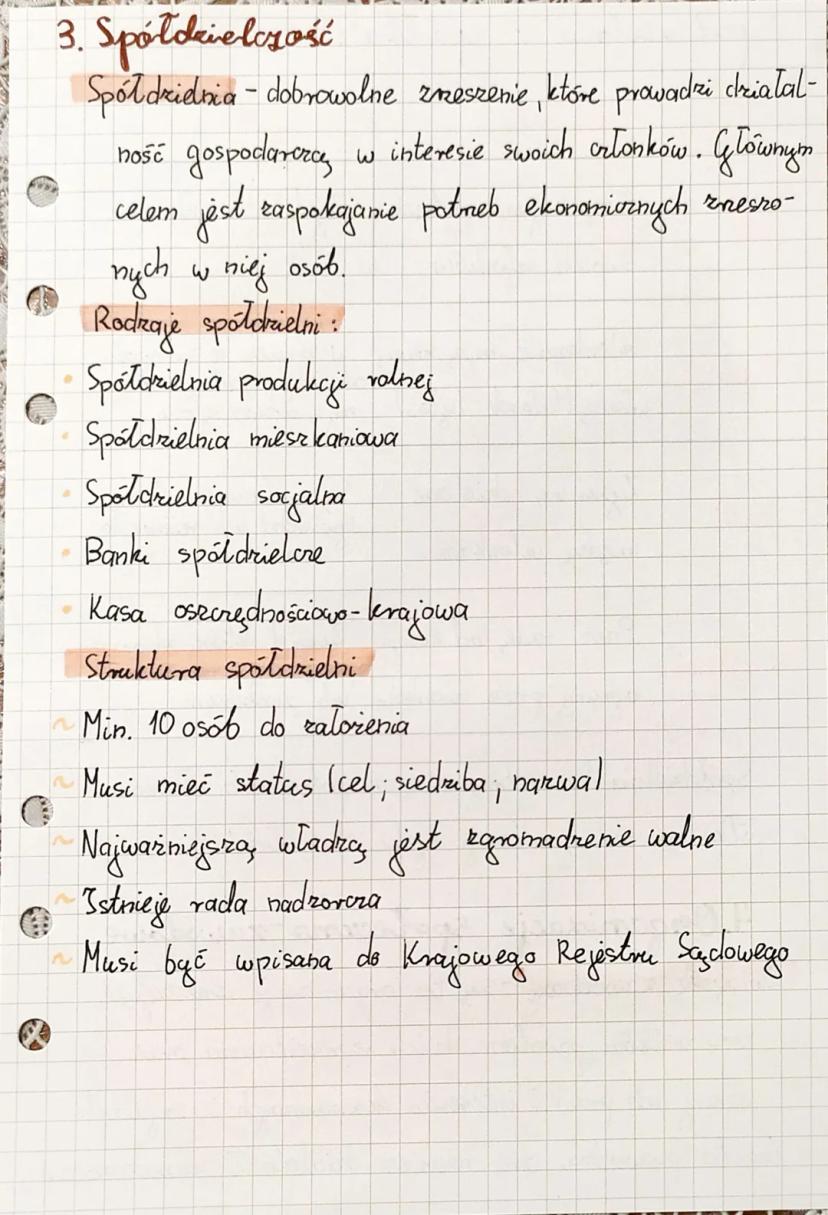 3. Spółdzielczość
Spółdzielnia - dobrowolne zrzeszenie, które prowadzi działal-
ność gospodarczą w interesie swoich członków. Głównym
celem jest zaspokajanie potrzeb ekonomicznych zrzeszo-
nych w niej osób.
Rodzaje spółdzielni:
• Spółdzielnia produkcji rolnej
• Spółdzielnia mieszkaniowa
• Spółdzielnia socjalna
• Banki spółdzielcze
• Kasa oszczędnościowo-krajowa
Struktura spółdzielni
~ Min. 10 osób do założenia
~ Musi mieć status (cel; siedziba; nazwa)
~ Najważniejszą władzą jest zgromadzenie walne
~ Istnieje rada nadzorcza
~ Musi być wpisana do Krajowego Rejestru Sądowego